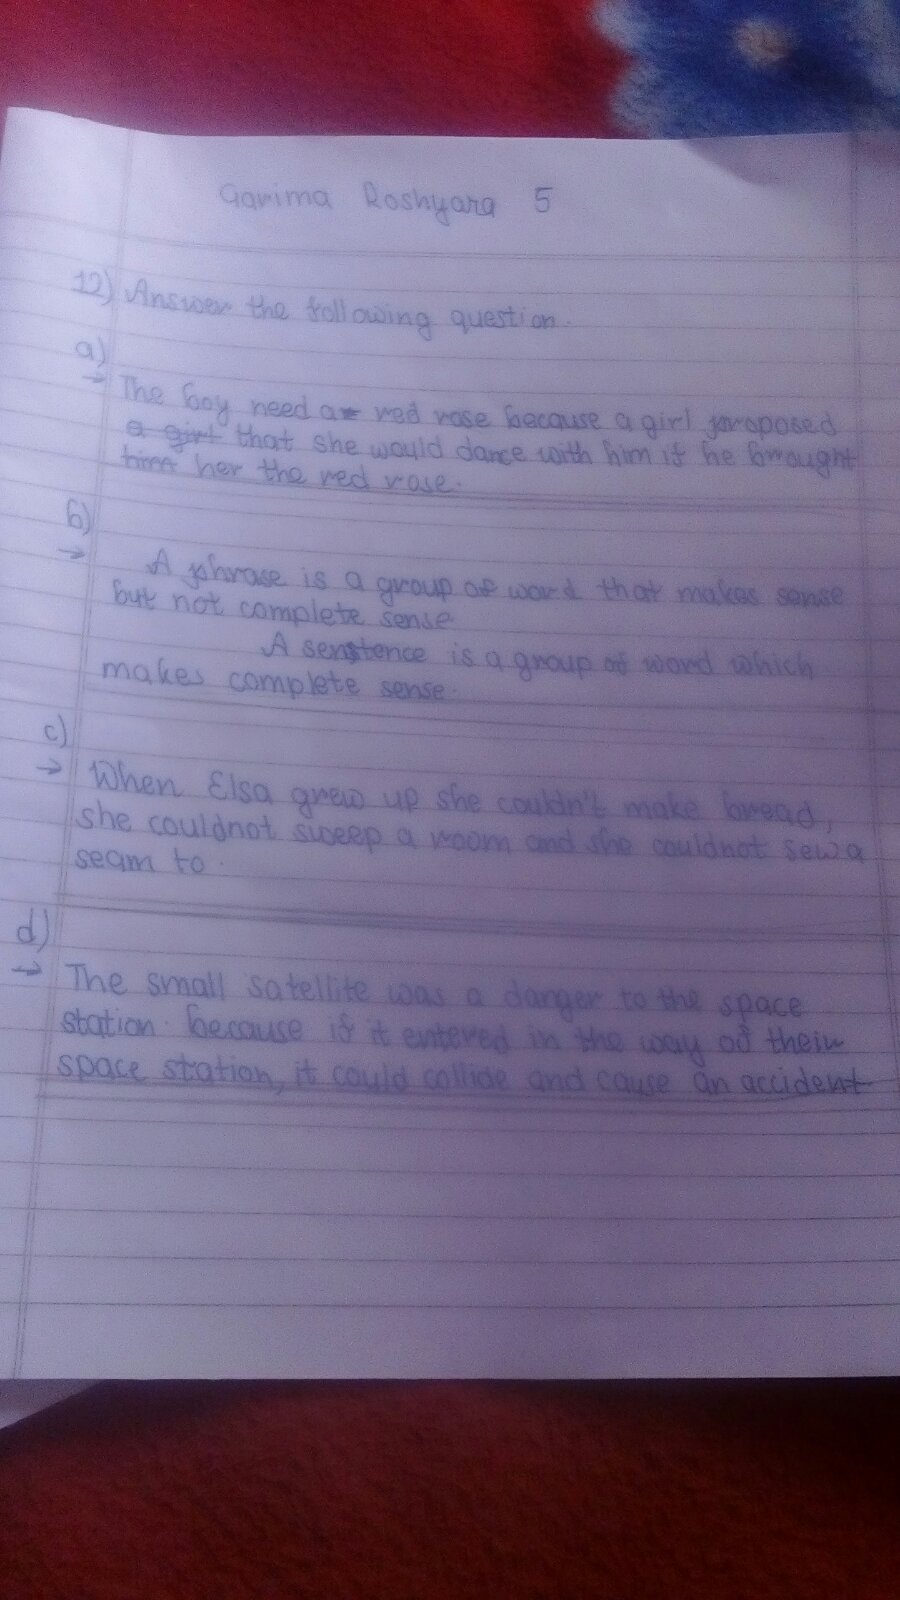 Garima Roshyara 5
12) Answer the following question.
a)
→ The boy need a red rose because a girl proposed
a girl that she would dance with him if he brought
him her the red rose.
b)
→ A phrase is a group of word that makes sense
but not complete sense
A senstence is a group of word which
makes complete sense.
c)
→ When Elsa grew up she couldn't make bread,
she couldnot sweep a room and she couldnot sew a
seam to.
d)
→ The small satellite was a danger to the space
station. because if it entered in the way of their
space station, it could collide and cause an accident